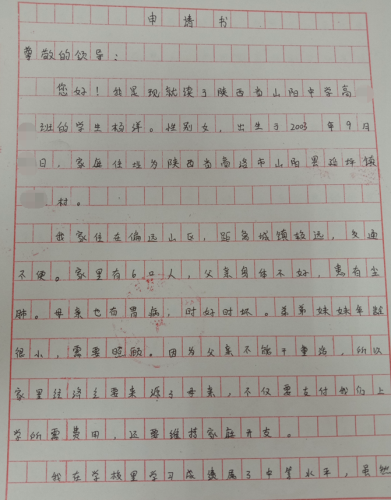 申请书
尊敬的领导：
您好！我是现就读于陕西省山阳中学高
班的学生杨洋。性别女，出生于2003年9月
日，家庭住址为陕西省商洛市山阳县 坪镇
村。
我家住在偏远山区，距离城镇较远，交通
不便。家里有6口人，父亲身体不好，患有尘
肺。母亲也有胃病，时好时坏。弟弟妹妹年龄
很小，需要照顾。因为父亲不能干重活，所以
家里经济主要来源于母亲，不仅需支付我们上
学所需费用，还要维持家庭开支。
我在学校里学习成绩属于中等水平，虽然